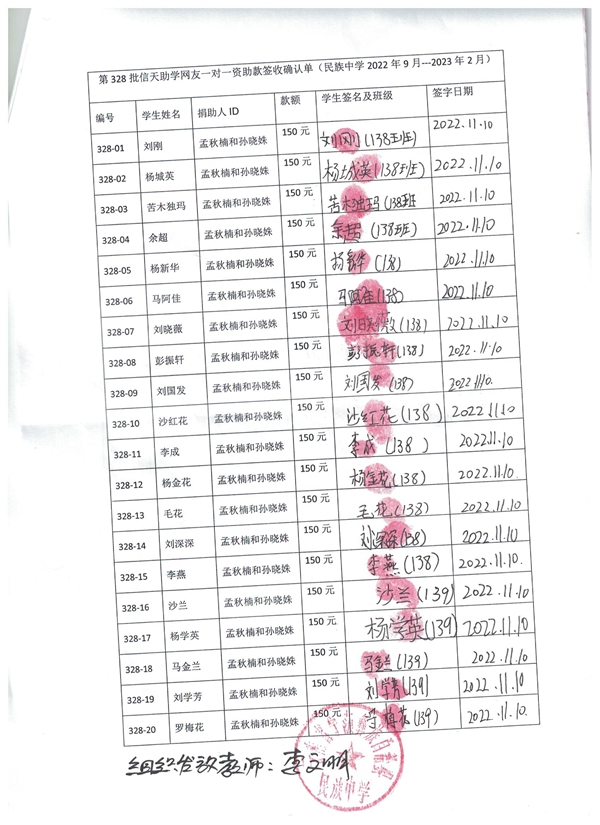 第 328 批信天助学网友一对一资助款签收确认单（民族中学 2022 年 9 月---2023 年 2 月）
编号 学生姓名 捐助人 ID 款额 学生签名及班级 签字日期
328-01 刘刚 孟秋楠和孙晓姝 150 元 刘刚(138班) 2022.11.10
328-02 杨城英 孟秋楠和孙晓姝 150 元 杨城英(138班) 2022.11.10
328-03 苦木独玛 孟秋楠和孙晓姝 150 元 苦木独玛(138班 2022.11.10
328-04 余超 孟秋楠和孙晓姝 150 元 余超(138班) 2022.11.10
328-05 杨新华 孟秋楠和孙晓姝 150 元 杨新华(138) 2022.11.10
328-06 马阿佳 孟秋楠和孙晓姝 150 元 马阿佳(138) 2022.11.10
328-07 刘晓薇 孟秋楠和孙晓姝 150 元 刘晓薇(138) 2022.11.10
328-08 彭振轩 孟秋楠和孙晓姝 150 元 彭振轩(138) 2022.11.10
328-09 刘国发 孟秋楠和孙晓姝 150 元 刘国发(138) 2022.11.10.
328-10 沙红花 孟秋楠和孙晓姝 150 元 沙红花(138) 2022.11.10
328-11 李成 孟秋楠和孙晓姝 150 元 李成(138) 2022.11.10
328-12 杨金花 孟秋楠和孙晓姝 150 元 杨金花(138) 2022.11.10
328-13 毛花 孟秋楠和孙晓姝 150 元 毛花(138) 2022.11.10
328-14 刘深深 孟秋楠和孙晓姝 150 元 刘深深(138) 2022.11.10
328-15 李燕 孟秋楠和孙晓姝 150 元 李燕(138) 2022.11.10.
328-16 沙兰 孟秋楠和孙晓姝 150 元 沙兰(139) 2022.11.10
328-17 杨学英 孟秋楠和孙晓姝 150 元 杨学英(139) 2022.11.10
328-18 马金兰 孟秋楠和孙晓姝 150 元 马金兰(139) 2022.11.10
328-19 刘学芳 孟秋楠和孙晓姝 150 元 刘学芳(139) 2022.11.10.
328-20 罗梅花 孟秋楠和孙晓姝 150 元 罗梅花(139) 2022.11.10.
组织发放教师：李文明
民族中学